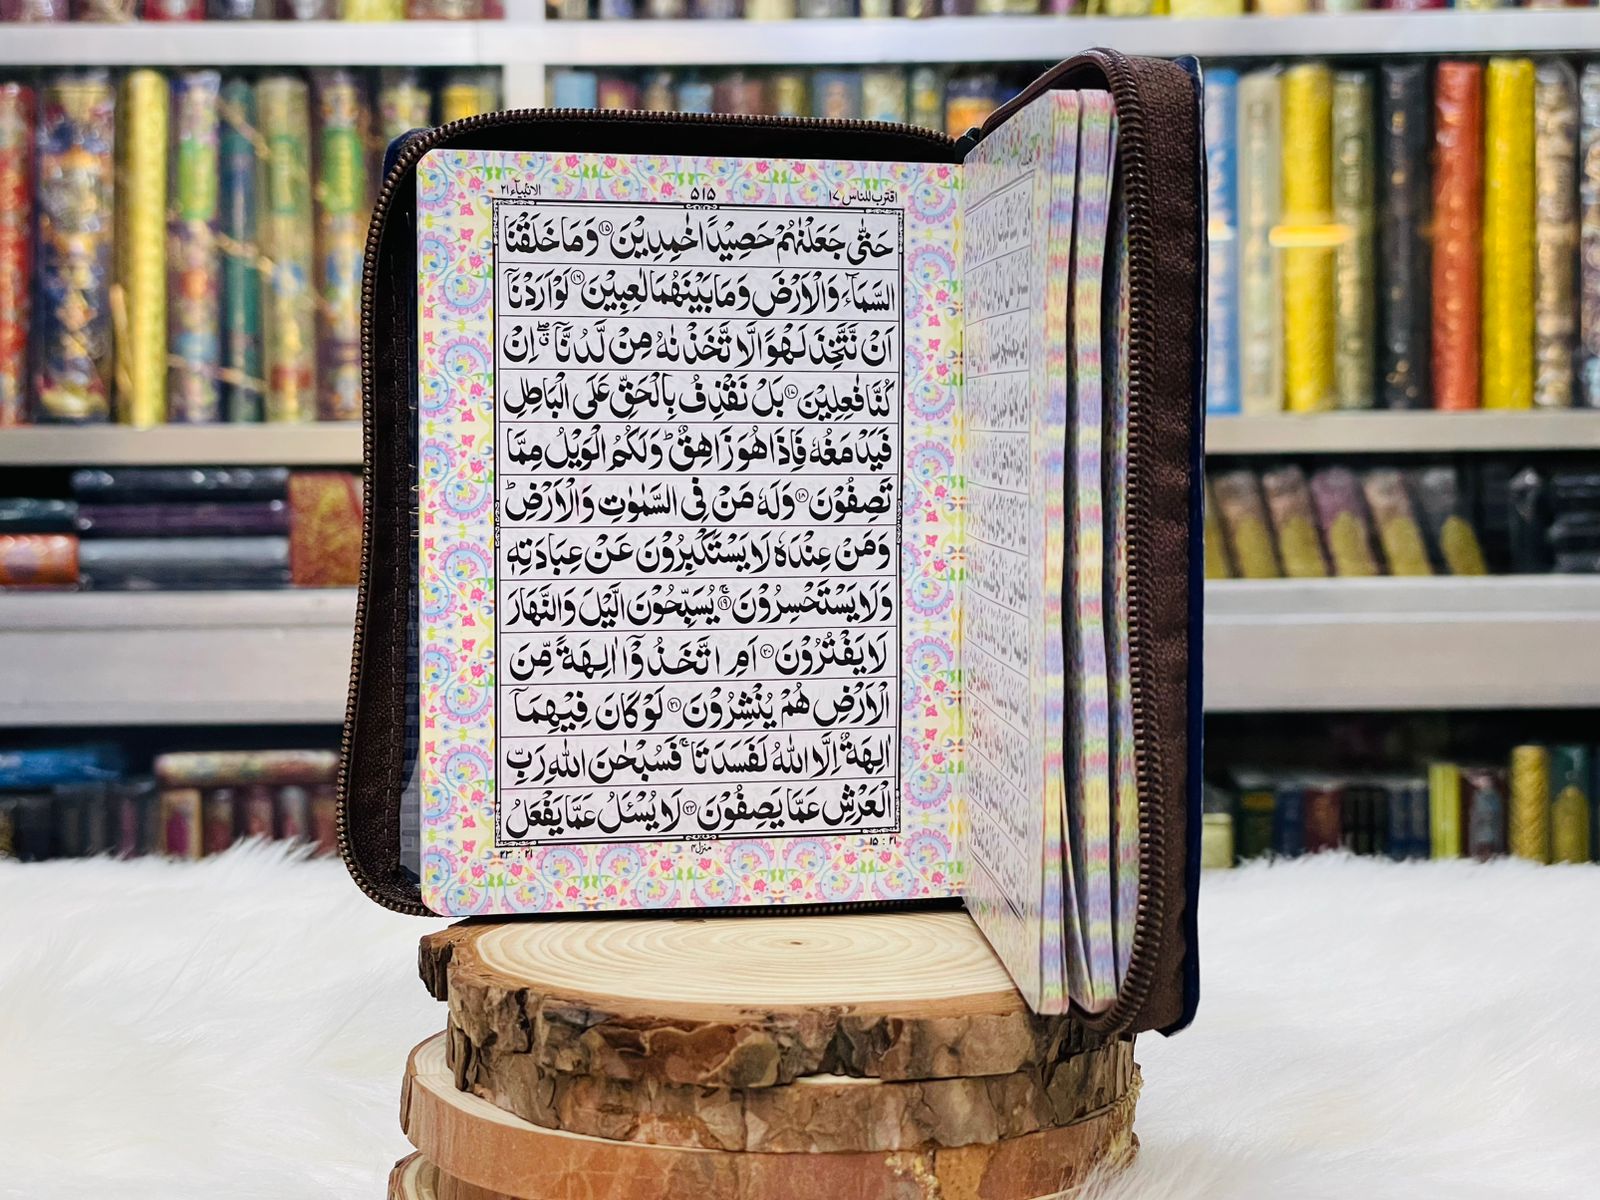 اقترب للناس ۱۷ ۵۱۵ الانبیآء ۲۱
حَتّٰى جَعَلْنٰهُمْ حَصِيْدًا خٰمِدِيْنَ ۝۱۵ وَمَا خَلَقْنَا
السَّمَآءَ وَالْاَرْضَ وَمَا بَيْنَهُمَا لٰعِبِيْنَ ۝۱۶ لَوْ اَرَدْنَآ
اَنْ نَّتَّخِذَ لَهْوًا لَّا تَّخَذْنٰهُ مِنْ لَّدُنَّآ ۖ ق اِنْ
كُنَّا فٰعِلِيْنَ ۝۱۷ بَلْ نَقْذِفُ بِالْحَقِّ عَلَى الْبَاطِلِ
فَيَدْمَغُهٗ فَاِذَا هُوَ زَاهِقٌ ؕ وَلَكُمُ الْوَيْلُ مِمَّا
تَصِفُوْنَ ۝۱۸ وَلَهٗ مَنْ فِى السَّمٰوٰتِ وَالْاَرْضِ ؕ
وَمَنْ عِنْدَهٗ لَا يَسْتَكْبِرُوْنَ عَنْ عِبَادَتِهٖ
وَلَا يَسْتَحْسِرُوْنَ ۝۱۹ۚ يُسَبِّحُوْنَ الَّيْلَ وَالنَّهَارَ
لَا يَفْتُرُوْنَ ۝۲۰ اَمِ اتَّخَذُوْٓا اٰلِهَةً مِّنَ
الْاَرْضِ هُمْ يُنْشِرُوْنَ ۝۲۱ لَوْ كَانَ فِيْهِمَآ
اٰلِهَةٌ اِلَّا اللّٰهُ لَفَسَدَتَا ۚ فَسُبْحٰنَ اللّٰهِ رَبِّ
الْعَرْشِ عَمَّا يَصِفُوْنَ ۝۲۲ لَا يُسْـَٔلُ عَمَّا يَفْعَلُ
۲۱ : ۱۵ منزل۴ ۲۱ : ۲۳